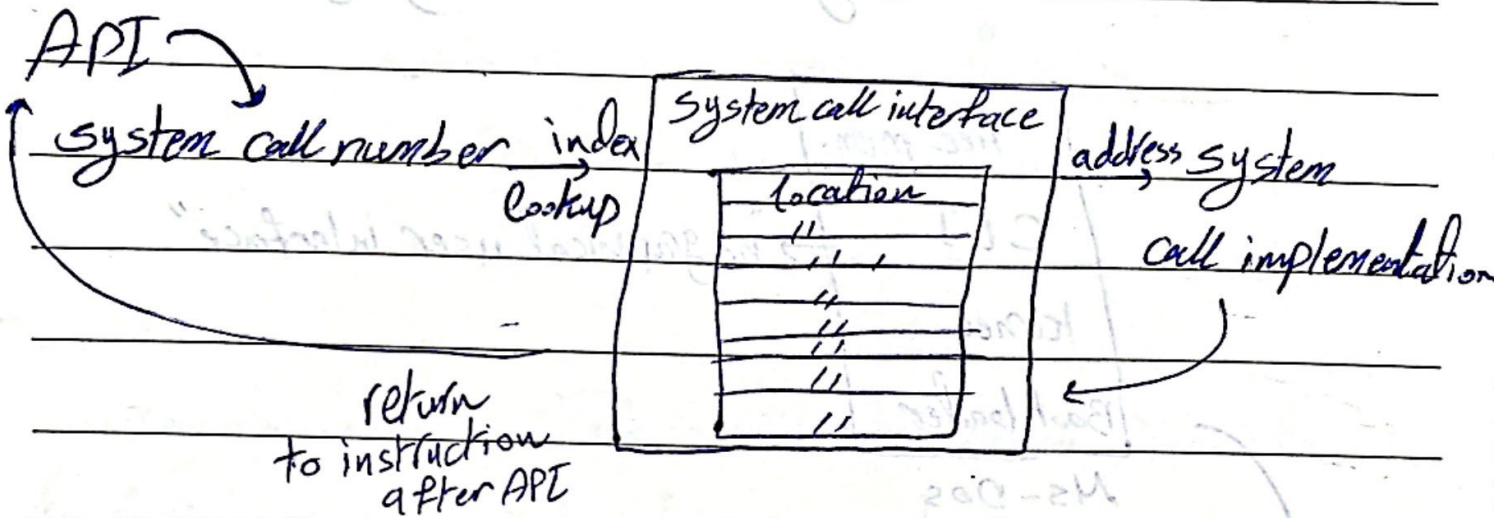 API
system call number
index
lookup
system call interface
location
"
" ,
"
"
"
"
"
address
system
call implementation
return
to instruction
after API
Ms-Dos